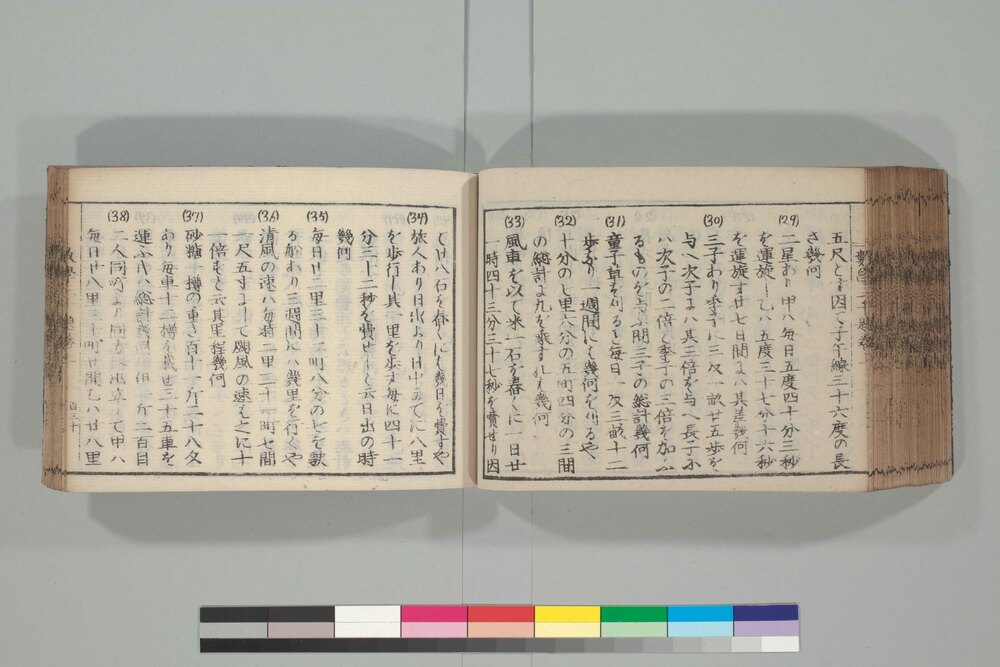 五尺とす因て子午線三十六度の長
さ幾何
(29) 二星あり甲ハ毎日五度四十分三秒
を運旋し乙ハ五度三十七分十六秒
を運旋す廿七日間にハ其差幾何
(30) 三子あり季子に三反一畝廿五歩を
与へ次子にハ其三倍を与へ長子に
ハ次子の二倍と季子の三倍を加へ
るものを与ふ問三子の総計幾何
(31) 童子草を刈るに毎日一反三畝十二
歩なり一週間にハ幾何を刈るや
(32) 十分の七里六分の五町四分の三間
の総計に九を乗すれハ幾何
(33) 風車を以て米一石を舂くに一日廿
一時四十三分三十七秒を費せり因
て廿八石を舂くにハ幾日を費すや
(34) 旅人あり日出より日中までに八里
を歩行し其一里を歩する毎に四十一
分三十二秒を費せしと云日出の時
幾何
(35) 毎日廿二里三十五町八分の七を駛
る船あり三週間にハ幾里を行くや
(36) 清風の速ハ毎時二里三十町七間
一尺五寸にして颶風の速ハ之に十
倍すと云其里程幾何
(37) 砂糖一樽の重さ百十一斤二十八匁
あり毎車十二樽を載せ三十五車を
運ふ代ハ総計幾何但一斤二百目
(38) 二人同町より同方へ出立して甲ハ
毎日廿八里三十町廿間乙ハ廿八里
百三十